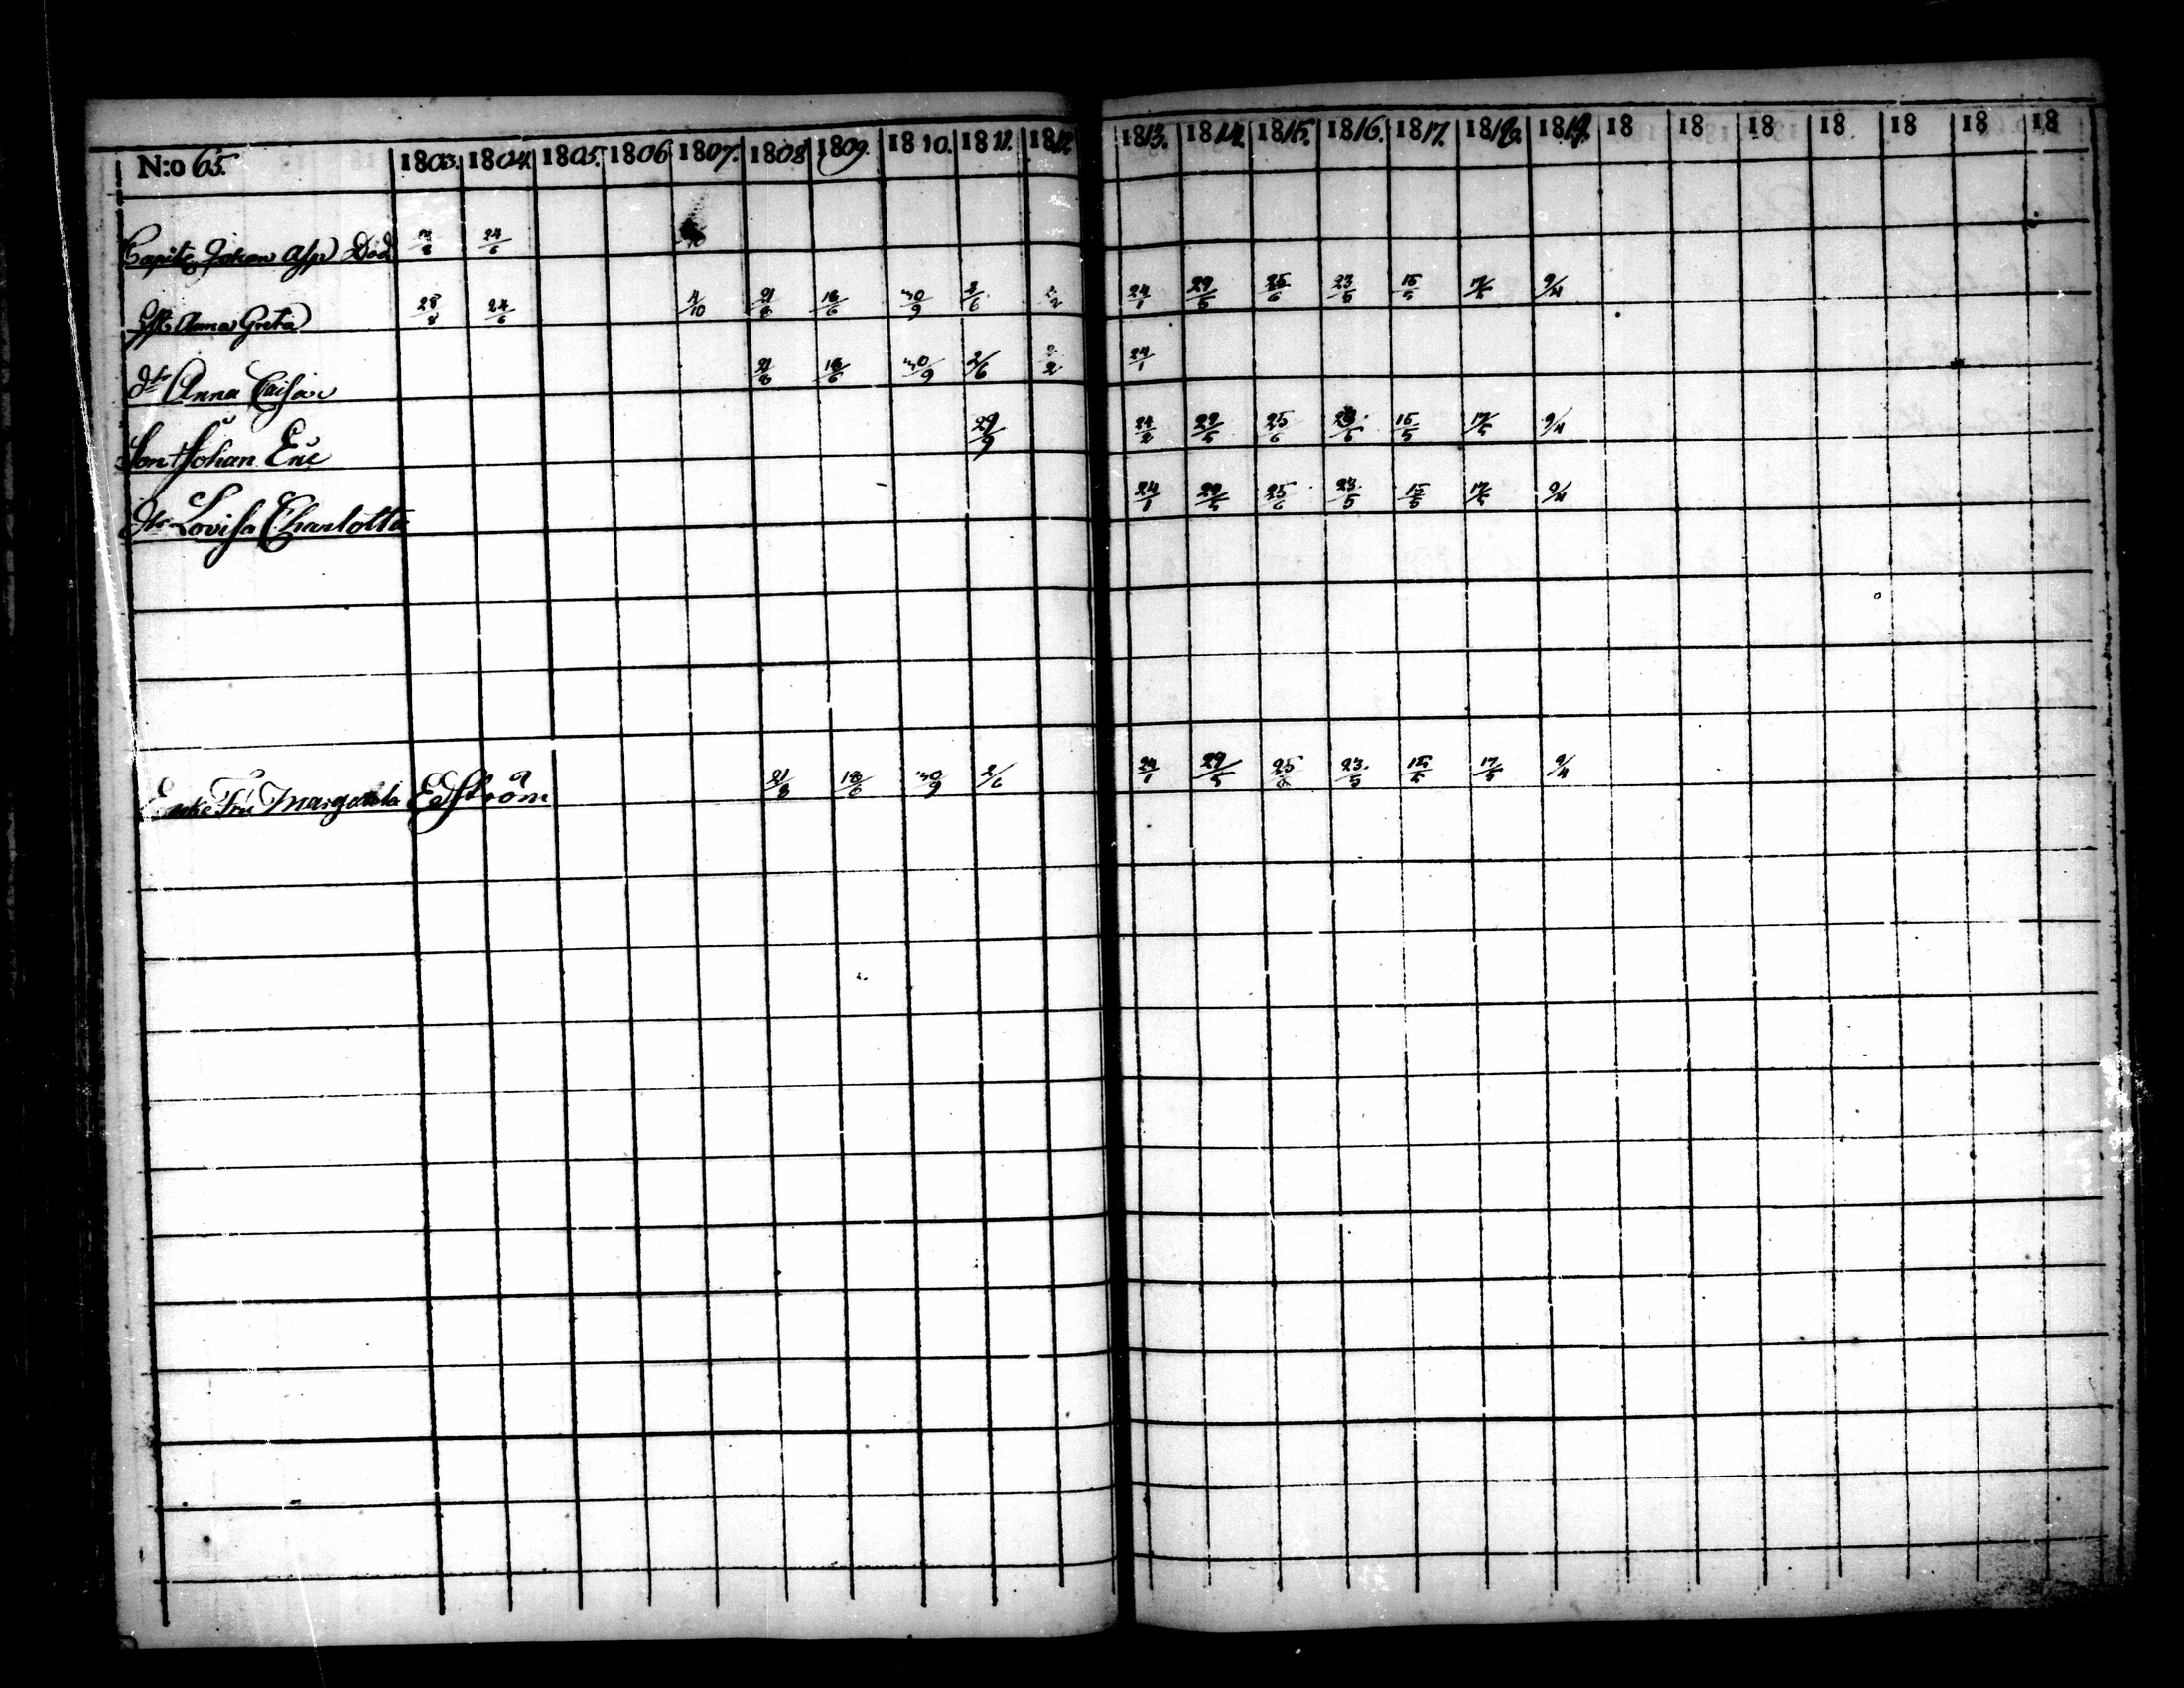 N:o 65. 1803. 1804. 1805. 1806 1807. 1808 1809. 1810. 1811. 1812. 1813. 1814. 1815. 1816. 1817. 1818. 1819. 18 18 18 18 18 18 18
Capite Johan Asp Död 24/6
Anna Greta 28/8 24/6 4/10 21/8 18/6 30/9 2/6 24/1 29/5 25/6 23/5 15/5 17/5 9/4
dtr Anna Caisa 21/8 18/6 30/9 2/6 24/1
Son Johan Eric 29/9 24/2 29/5 25/6 15/5 17/5 9/4
dtr Lovisa Charlotta 24/1 29/5 25/6 23/5 15/5 17/5 9/4
Enke Fru Margareta Edström 21/8 18/6 30/9 2/6 24/1 29/5 25/6 23/5 15/5 17/5 9/4